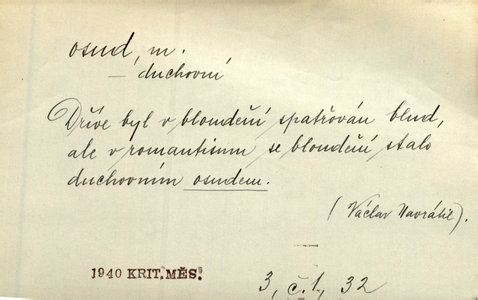 osud, m.
— duchovní
Dříve byl v bloudění spatřován blud,
ale v romantismu se bloudění stalo
duchovním osudem.
(Václav Navrátil).
1940 KRIT. MĚS.
3, č. 1, 32